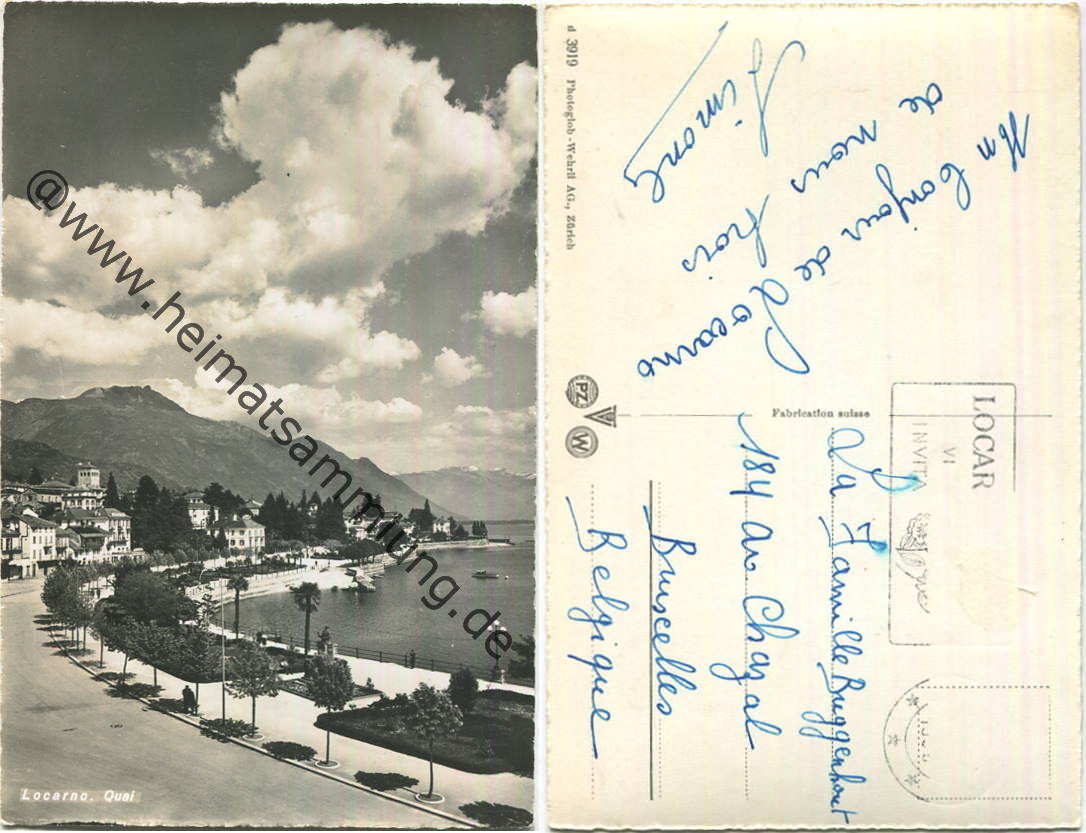 Locarno. Quai
@www.heimatsammlung.de
d 3919 Photoglob-Wehrli AG., Zürich
Un bonjour de Locarno
de nous trois
Simone
Fabrication suisse
PZ
W
LOCAR
VI
INVITA
La Famille Buggenhout
184 av Chazal
Bruxelles
Belgique